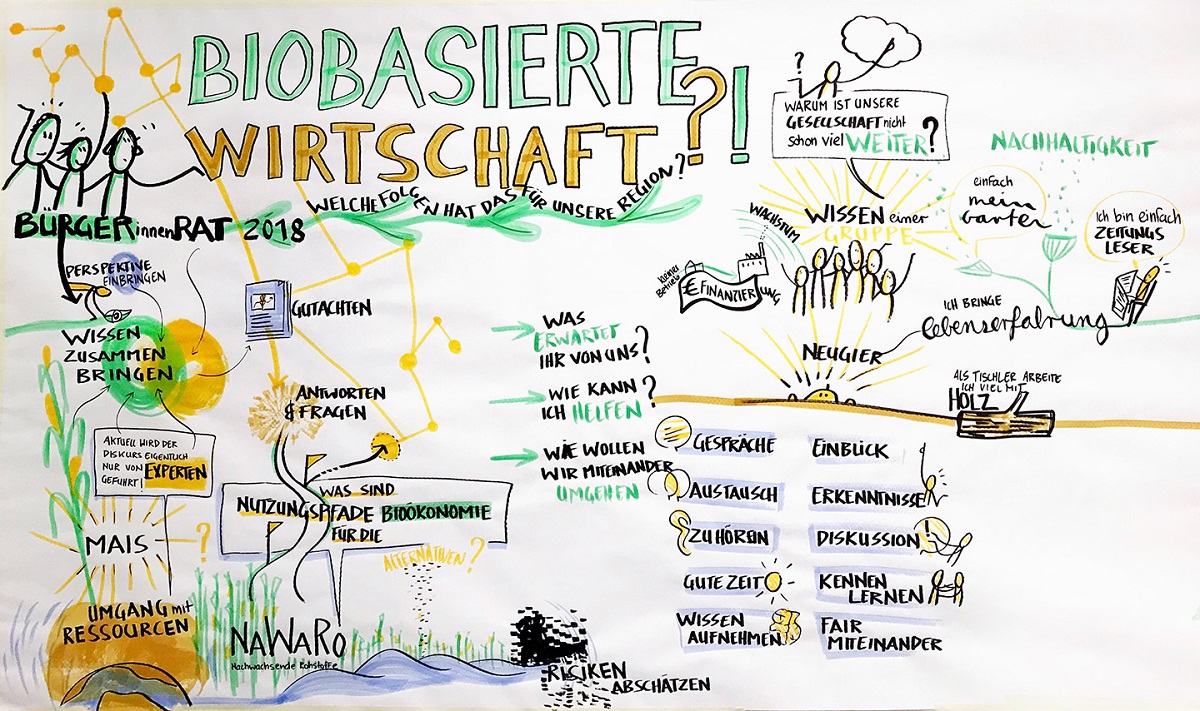 BIOBASIERTE
WIRTSCHAFT?!
WELCHE FOLGEN HAT DAS FÜR UNSERE REGION?
BÜRGERinnenRAT 2018
PERSPEKTIVE
EINBRINGEN
WISSEN
ZUSAMMEN
BRINGEN
AKTUELL WIRD DER
DISKURS EIGENTLICH
NUR VON EXPERTEN
GEFÜHRT!
MAIS
?
UMGANG mit
RESSOURCEN
GUTACHTEN
ANTWORTEN
& FRAGEN
WAS SIND
NUTZUNGSPFADE BIOÖKONOMIE
FÜR DIE
ALTERNATIVEN?
NAWARO
Nachwachsende Rohstoffe
RISIKEN
ABSCHÄTZEN
WAS
ERWARTET
IHR VON UNS?
WIE KANN
ICH HELFEN?
WIE WOLLEN
WIR MITEINANDER
UMGEHEN
?
WARUM IST UNSERE
GESELLSCHAFT nicht
schon viel WEITER?
WACHSTUM
kleiner
Betrieb
€ FINANZIERUNG
WISSEN einer
GRUPPE
NACHHALTIGKEIT
einfach
mein
Garten
Ich bin einfach
ZEITUNGS
LESER
ICH BRINGE
lebenserfahrung
NEUGIER
ALS TISCHLER ARBEITE
ICH VIEL MIT
HOLZ
GESPRÄCHE
AUSTAUSCH
ZUHÖREN
GUTE ZEIT
WISSEN
AUFNEHMEN
EINBLICK
ERKENNTNISSE
DISKUSSION
KENNEN
LERNEN
FAIR
MITEINANDER